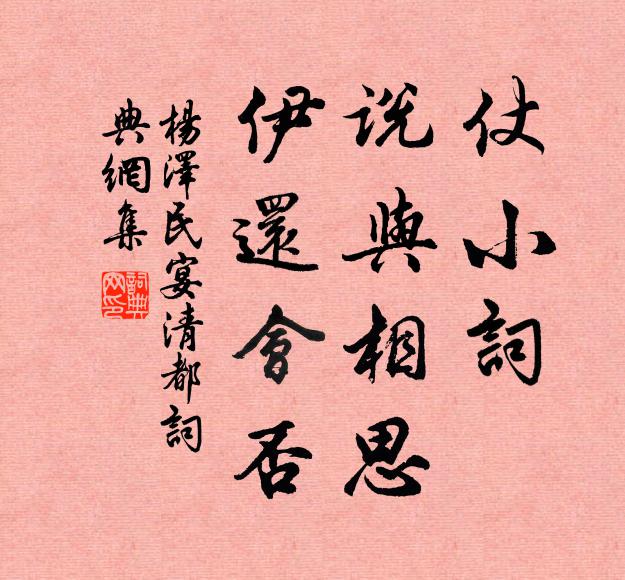 仗小詞
說與相思
伊還會否
楊澤民宴清都詞
典網集
詞典網印